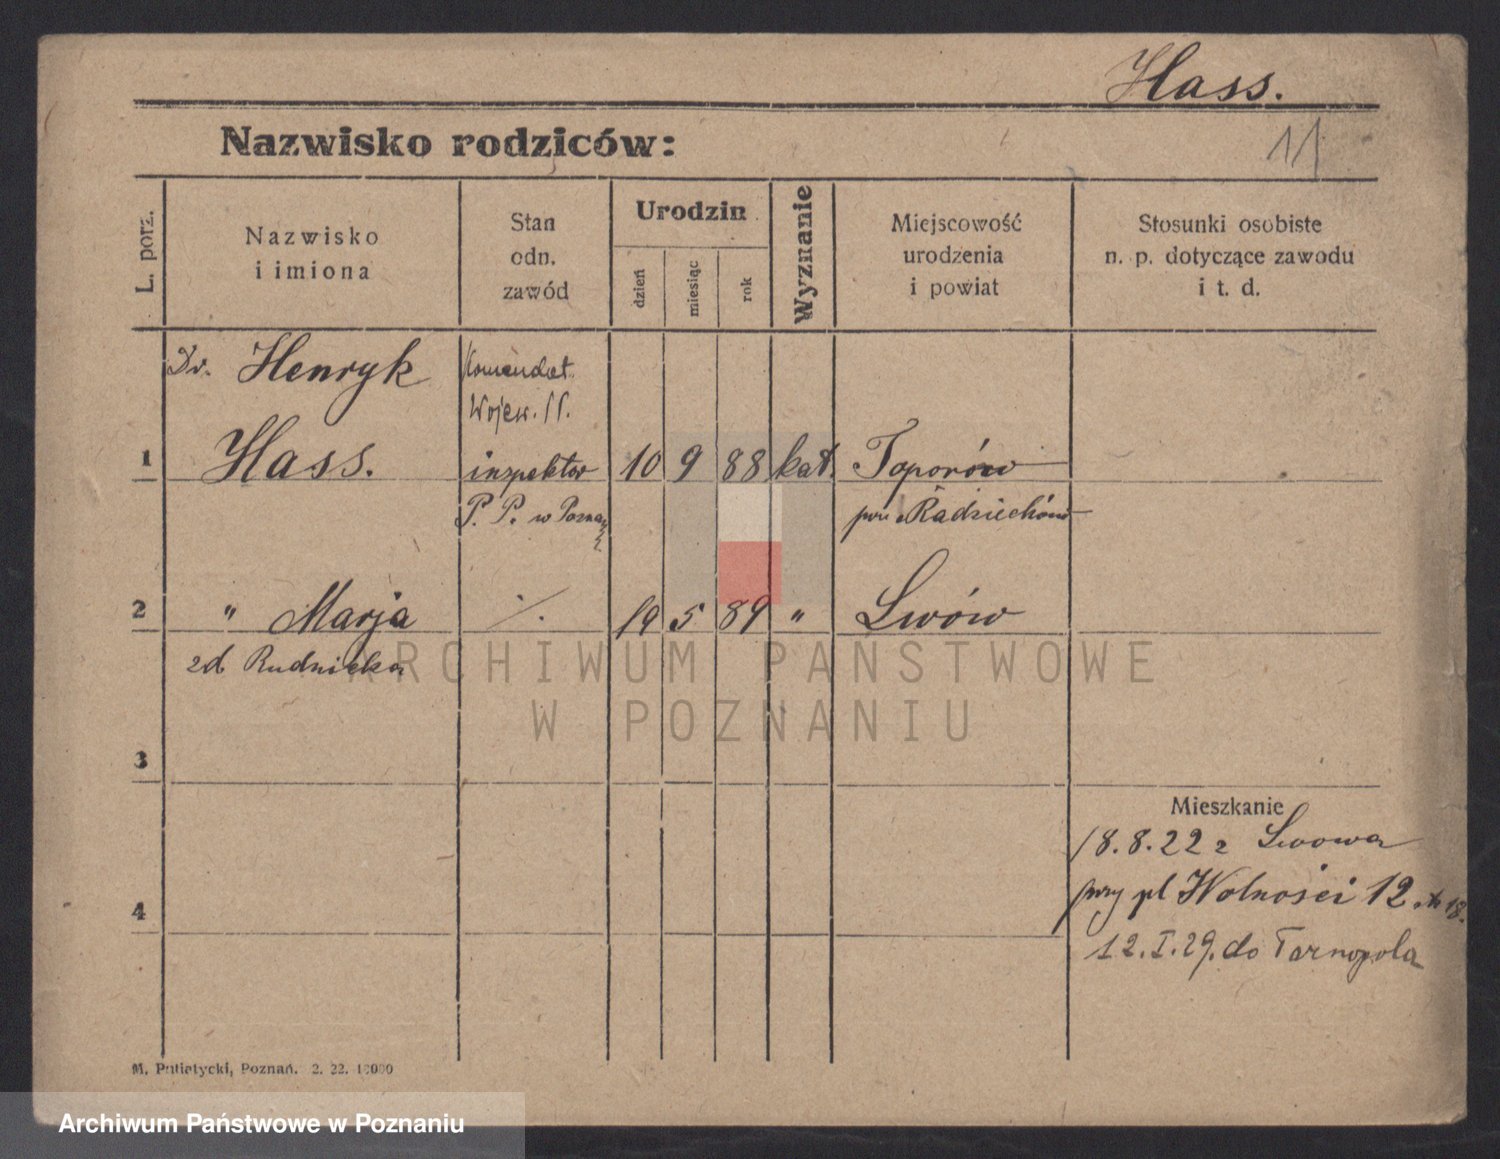 Hass.
Nazwisko rodziców:
11
L. porz.
Nazwisko
i imiona
Stan
odn.
zawód
Urodzin
dzień
miesiąc
rok
Wyznanie
Miejscowość
urodzenia
i powiat
Stosunki osobiste
n. p. dotyczące zawodu
i t. d.
Dr. Henryk
Komendat
Wojew.
1 Hass. inspektor 10 9 88 kat. Toporów
P. P. w Pozna
pow Radziechów
2 " Marja ./. 19 5 89 " Lwów
zd Rudnicka
3
Mieszkanie
18.8.22 z Lwowa
przy pl Wolności 12 18.
4
12.I.29. do Tarnopola
M. Putiatycki, Poznań. 2. 22. 10000
ARCHIWUM PAŃSTWOWE
W POZNANIU
Archiwum Państwowe w Poznaniu